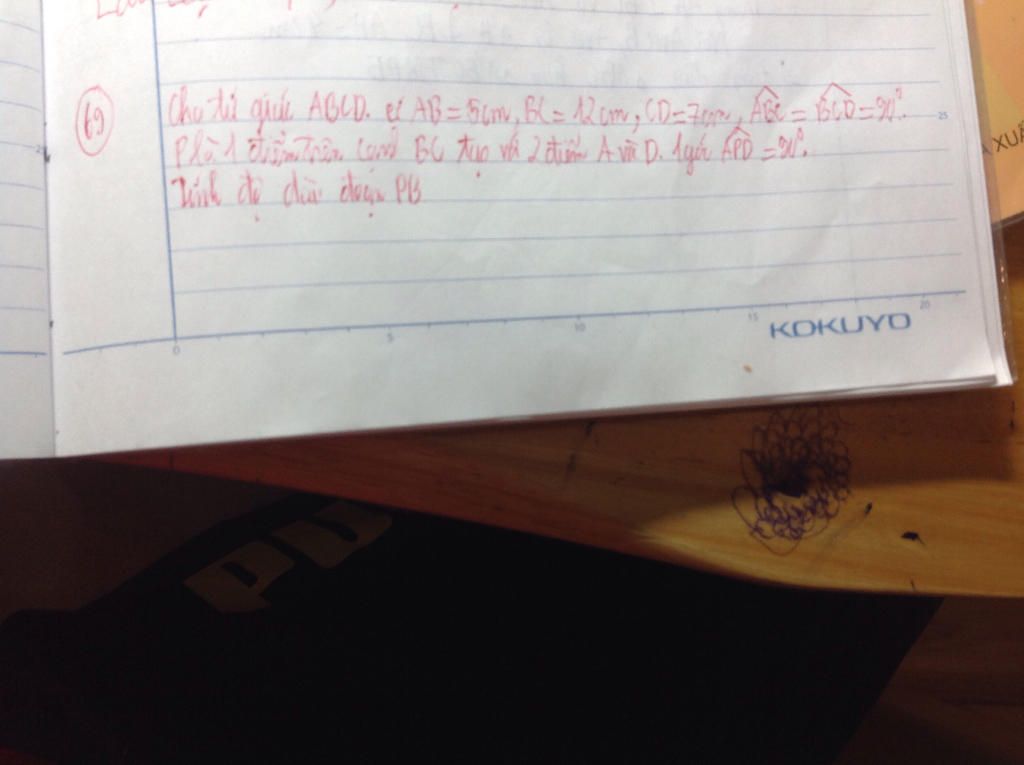 69
Cho tứ giác ABCD. có AB = 5cm, BC = 12cm, CD = 7cm, ABC = BCD = 90°.
P là 1 điểm trên cạnh BC tạo với 2 điểm A và D. 1 góc APD = 90°.
Tính độ dài đoạn PB
25
0 5 10 15 20
KOKUYO
XUÂ
PU